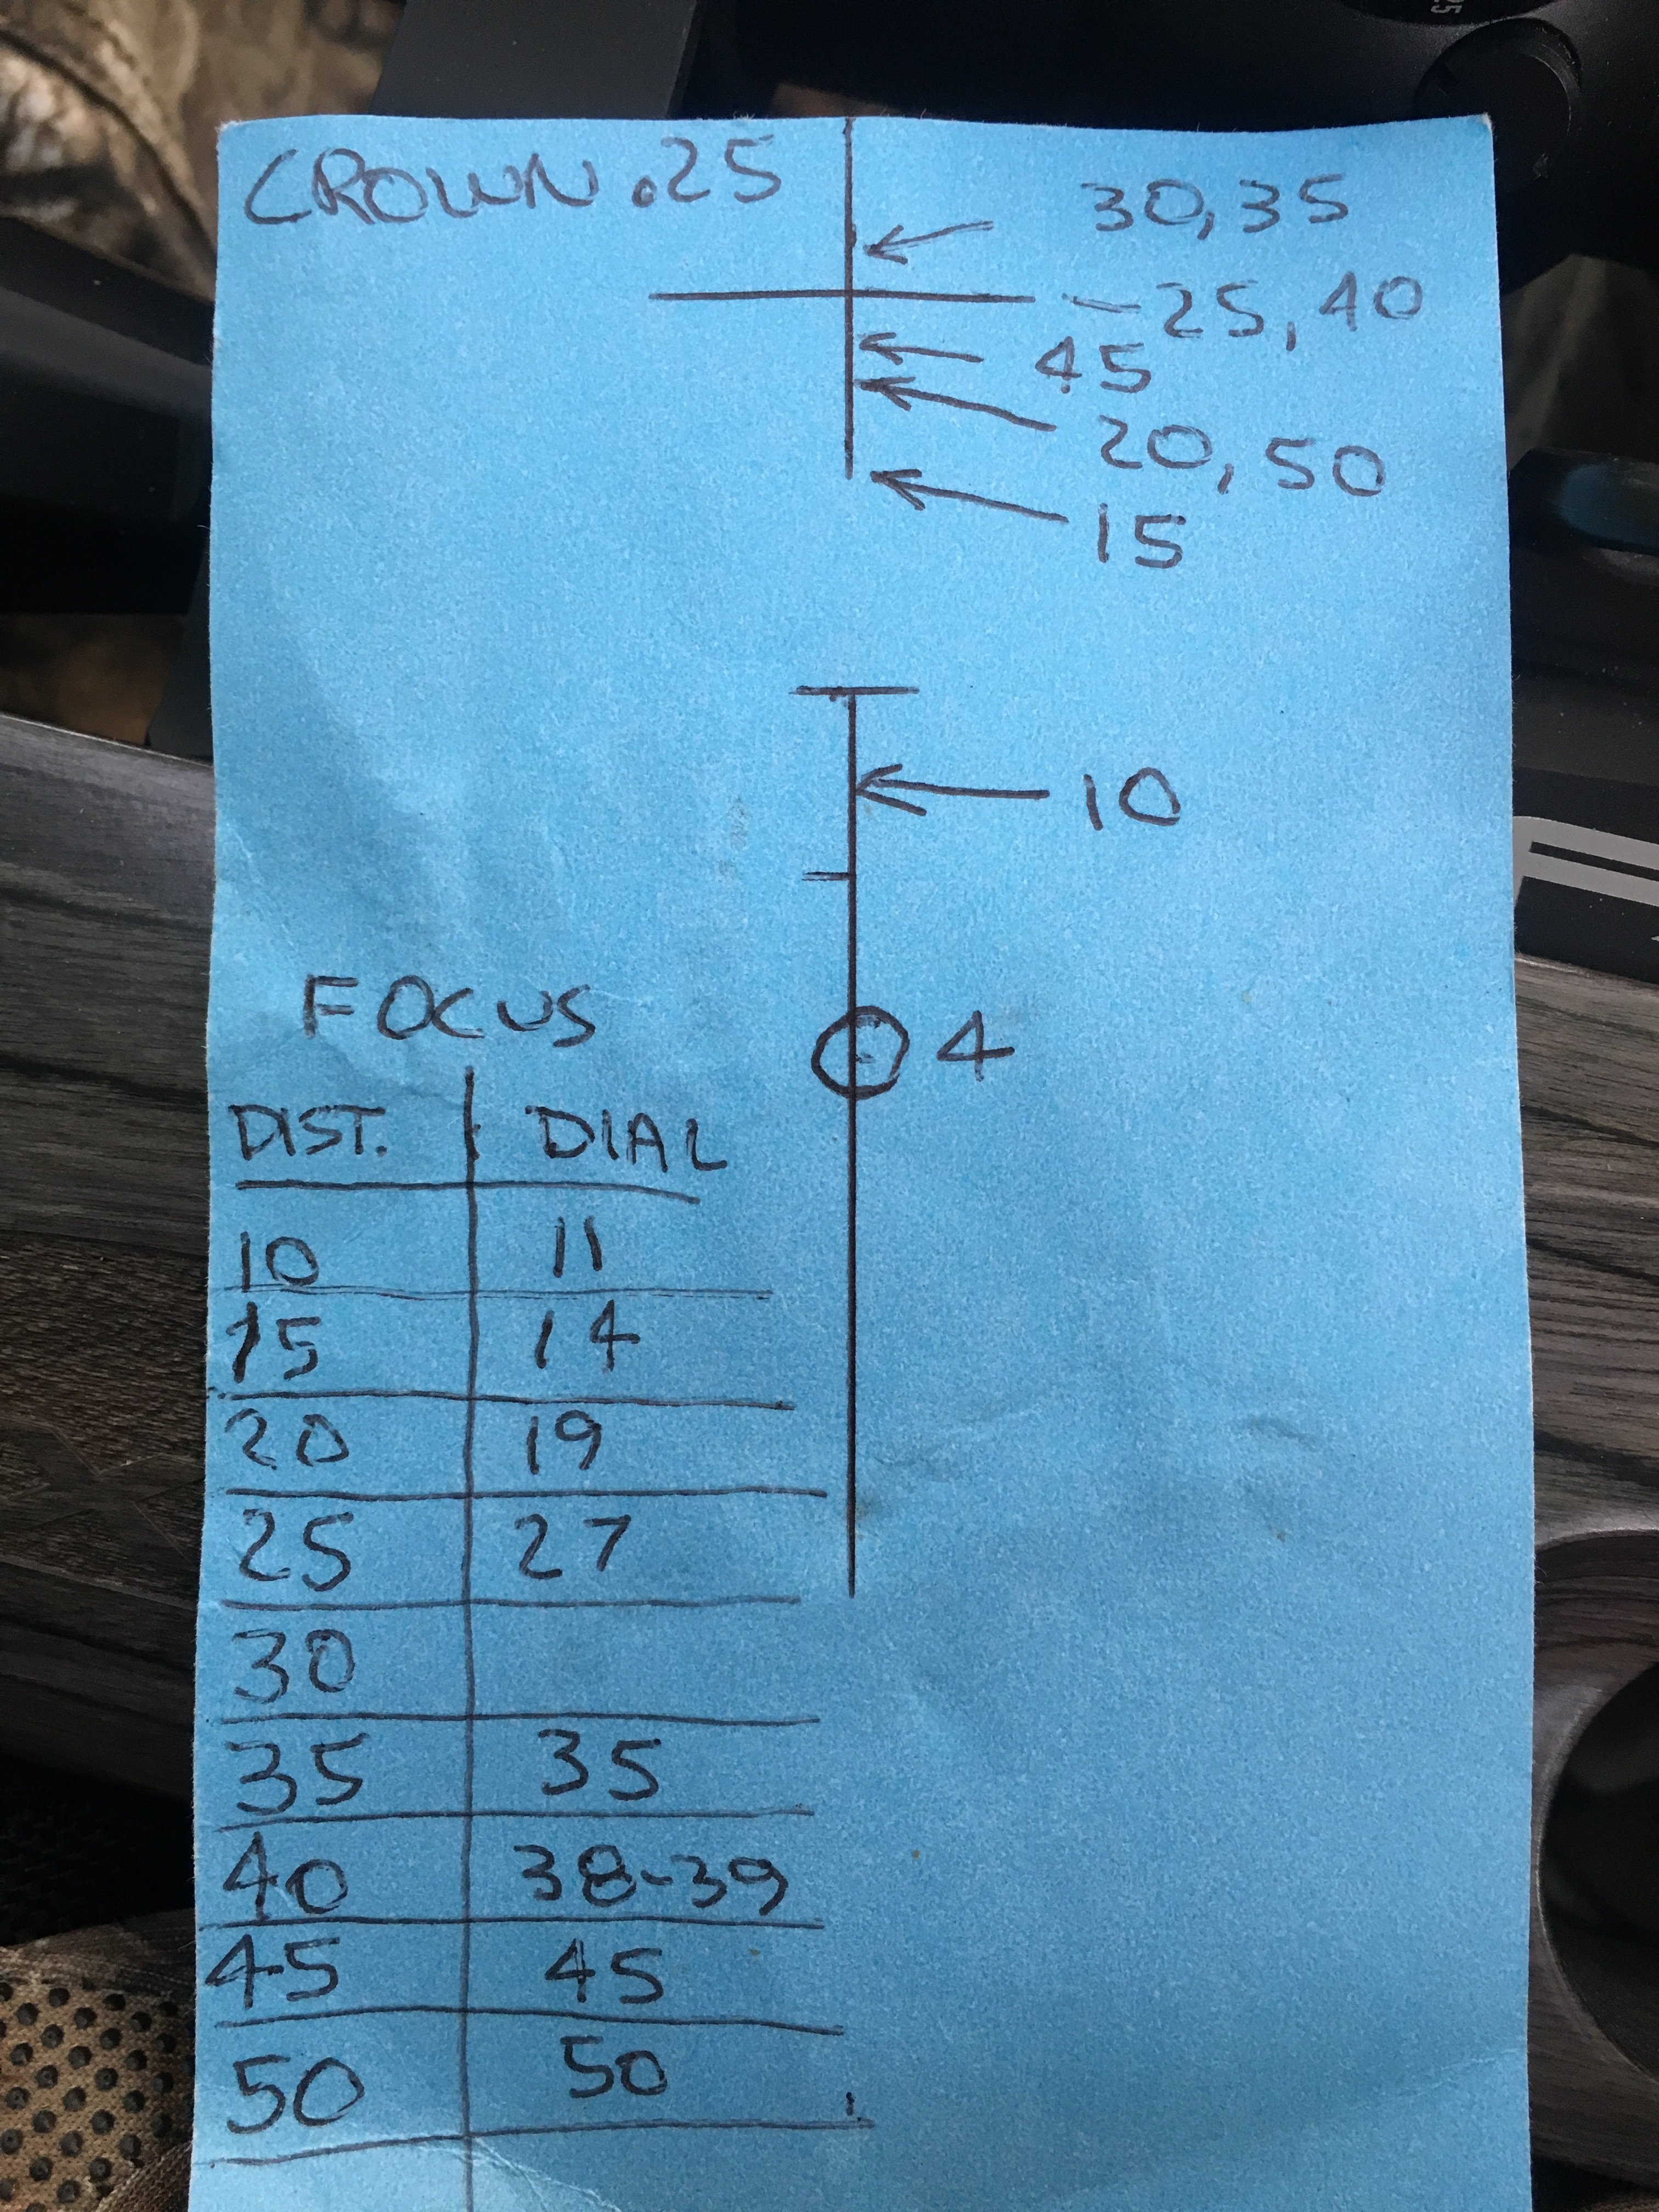 CROWN .25
30, 35
25, 40
45
20, 50
15
10
4
FOCUS
DIST. DIAL
10 11
15 14
20 19
25 27
30
35 35
40 38-39
45 45
50 50